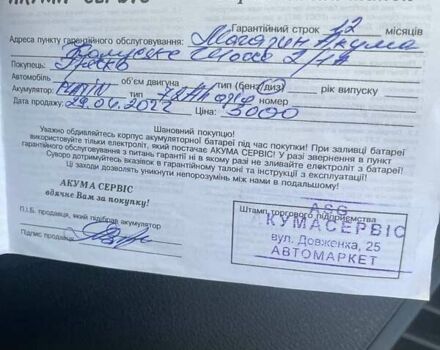 АКУМА СЕРВІС
Гарантійний строк 12 місяців
Адреса пункту гарантійного обслуговування: Магазин Акума
Покупець:
Автомобіль об'єм двигуна тип (бенз/диз) рік випуску
Акумулятор: PLATIN тип 72Ah номер
Дата продажу: 29.04.2022 Ціна: 3000
Шановний покупцю!
Уважно обдивляйтесь корпус акумуляторної батареї під час покупки! При заливці батареї
використовуйте тільки електроліт, який постачає АКУМА СЕРВІС! У разі звернення в пункт
гарантійного обслуговування з питань гарантії ні в якому разі не зливайте електроліт з батареї!
Суворо дотримуйтесь вказівок в гарантійному талоні та інструкції з експлуатації!
Ці заходи дозволять уникнути непорозумінь між нами в подальшому!
АКУМА СЕРВІС
вдячне Вам за покупку!
П.І.Б. продавця, який підібрав акумулятор
Підпис продавця
Штамп торгового підприємства
ASG
АКУМАСЕРВІС
вул. Довженка, 25
АВТОМАРКЕТ